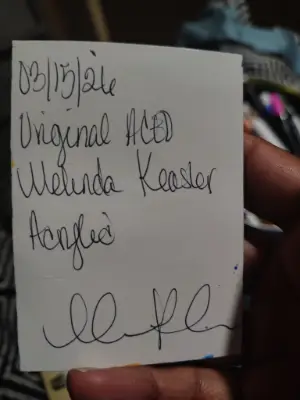 03/15/26
Original ACEO
Melinda Keasler
Acrylic